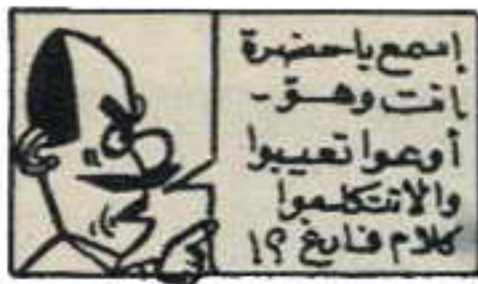 إسمع ياحضرة
إنت وهـو -
أوعوا تعيبوا
والا تتكلموا
كلام فارغ ؟!